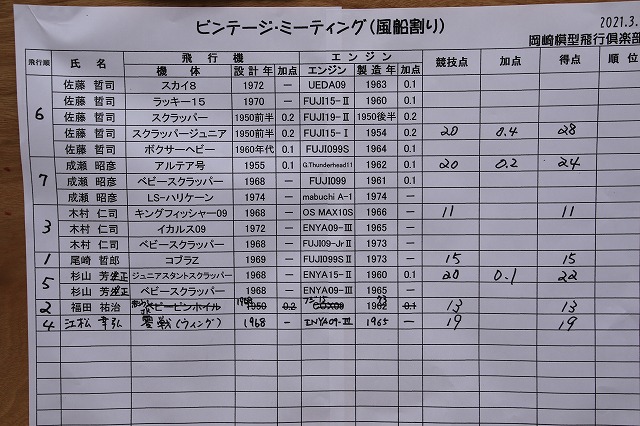 ビンテージ・ミーティング(風船割り)
2021.3.
岡崎模型飛行倶楽部
飛行順 氏 名 飛 行 機 エ ン ジ ン 競技点 加点 得点 順 位
機 体 設計年 加点 エンジン 製造年 加点
6
佐藤 哲司 スカイ8 1972 ー UEDA09 1963 0.1
佐藤 哲司 ラッキー15 1970 ー FUJI15-Ⅱ 1960 0.1
佐藤 哲司 スクラッパー 1950前半 0.2 FUJI19-Ⅱ 1950後半 0.2
佐藤 哲司 スクラッパージュニア 1950前半 0.2 FUJI15-Ⅰ 1954 0.2 20 0.4 28
佐藤 哲司 ボクサーヘビー 1960年代 0.1 FUJI099S 1964 0.1
7
成瀬 昭彦 アルテア号 1955 0.1 G.Thunderhead11 1962 0.1 20 0.2 24
成瀬 昭彦 ベビースクラッパー 1968 ー FUJI099 1961 0.1
成瀬 昭彦 LS-ハリケーン 1974 ー mabuchi A-1 1974 ー
3
木村 仁司 キングフィッシャー09 1968 ー OS MAX10S 1966 ー 11 11
木村 仁司 イカルス09 1973 ー ENYA09-Ⅲ 1965 ー
木村 仁司 ベビースクラッパー 1968 ー FUJI09-JrⅡ 1973 ー
1 尾崎 哲郎 コブラZ 1969 ー FUJI099SⅡ 1973 ー 15 15
5
杉山 芳正 ジュニアスタントスクラッパー 1968 ー ENYA15-Ⅱ 1960 0.1 20 0.1 22
杉山 芳正 ベビースクラッパー 1968 ー ENYA09-Ⅲ 1965 ー
2 福田 祐治 1950 0.2 1962 0.1 13 13
4 江松 (ウィング) 1968 ー ENYA09-Ⅲ 1965 ー 19 19